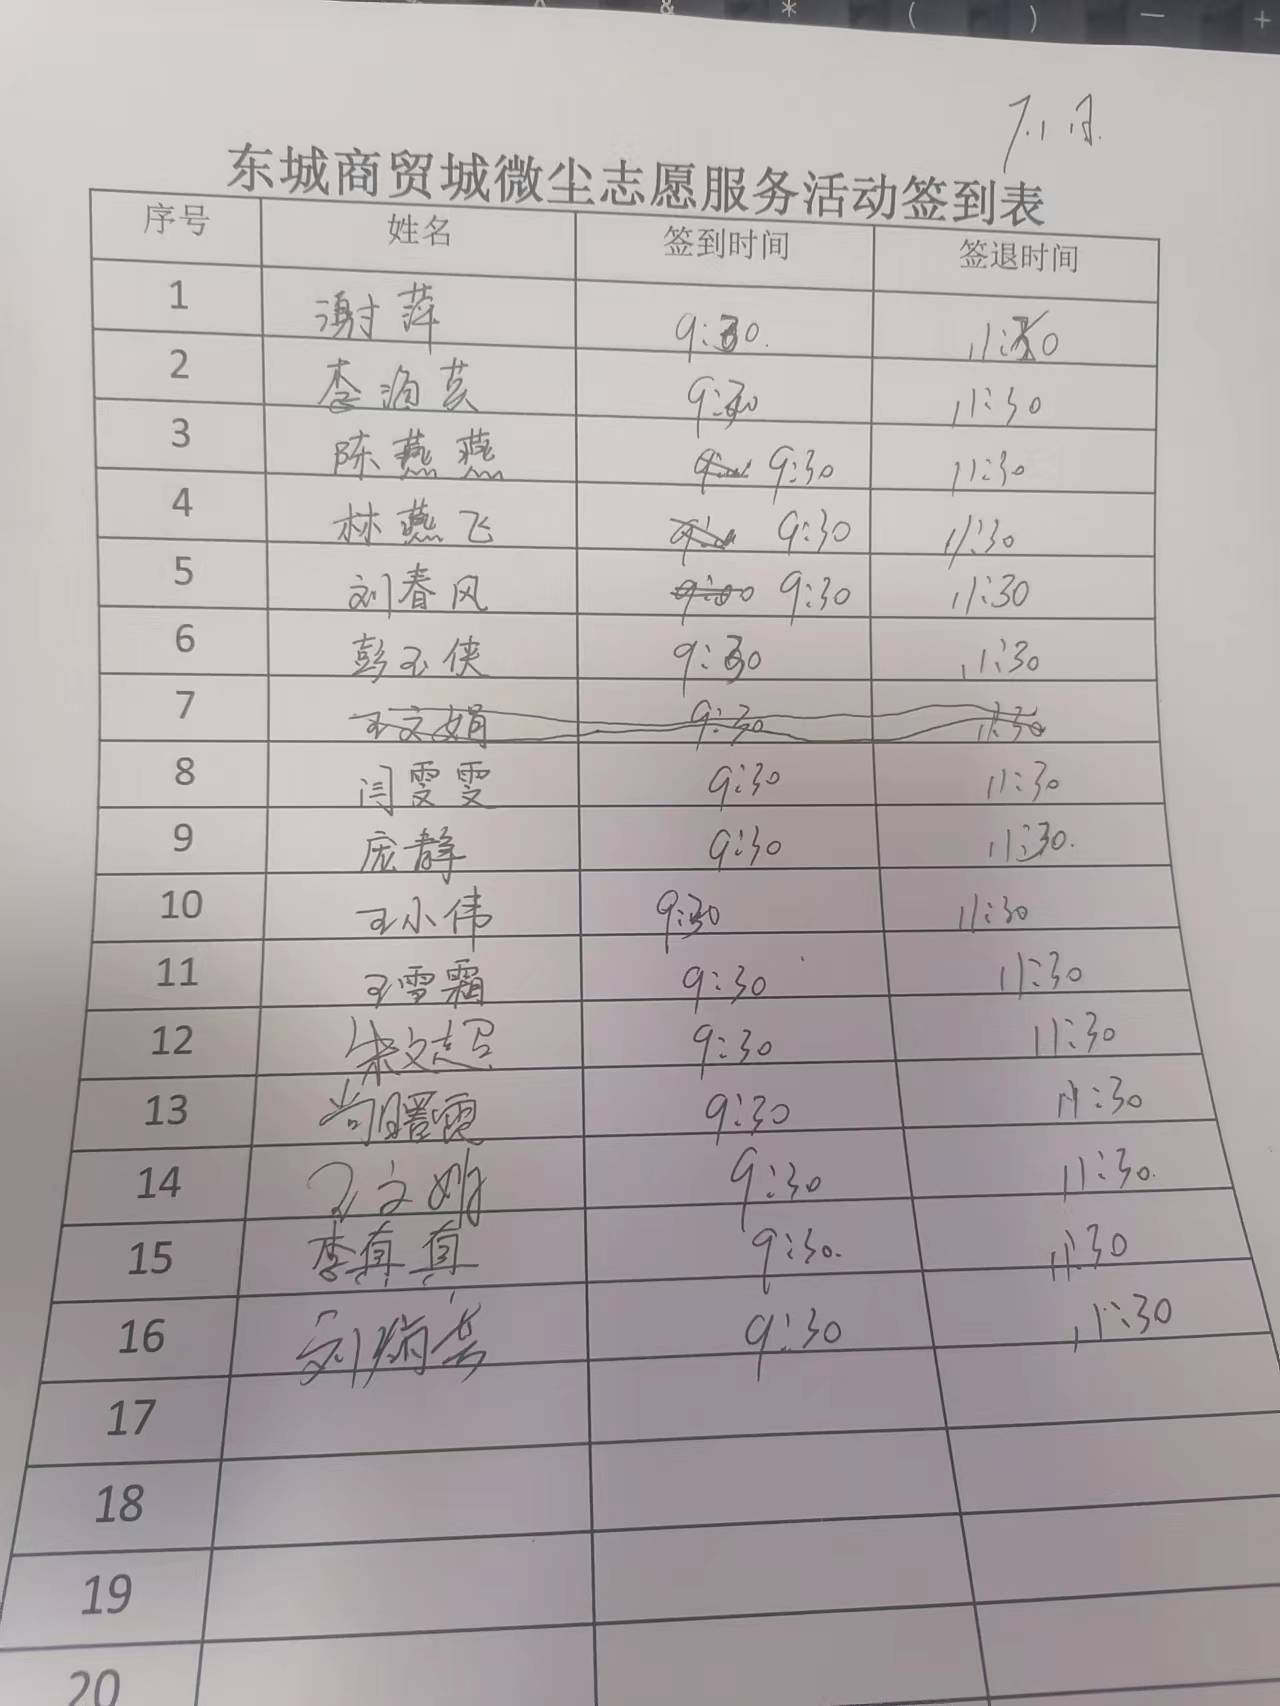 * ( ) — +
东城商贸城微尘志愿服务活动签到表
序号 姓名 签到时间 签退时间
1 谢萍 9:30. 11:30
2 李 9:30 11:30
3 陈燕燕 9:30 11:30
4 林燕飞 9:30 11:30
5 刘春风 9:00 9:30 11:30
6 彭玉侠 9:30 11:30
7 王文娟 9:30 11:30
8 闫雯雯 9:30 11:30
9 庞静 9:30 11:30.
10 王小伟 9:30 11:30
11 王雪霜 9:30 11:30
12 朱文 9:30 11:30
13 尚曙霞 9:30 11:30
14 王文娟 9:30 11:30.
15 李真真 9:30. 11:30
16 刘 9:30 11:30
17
18
19
20